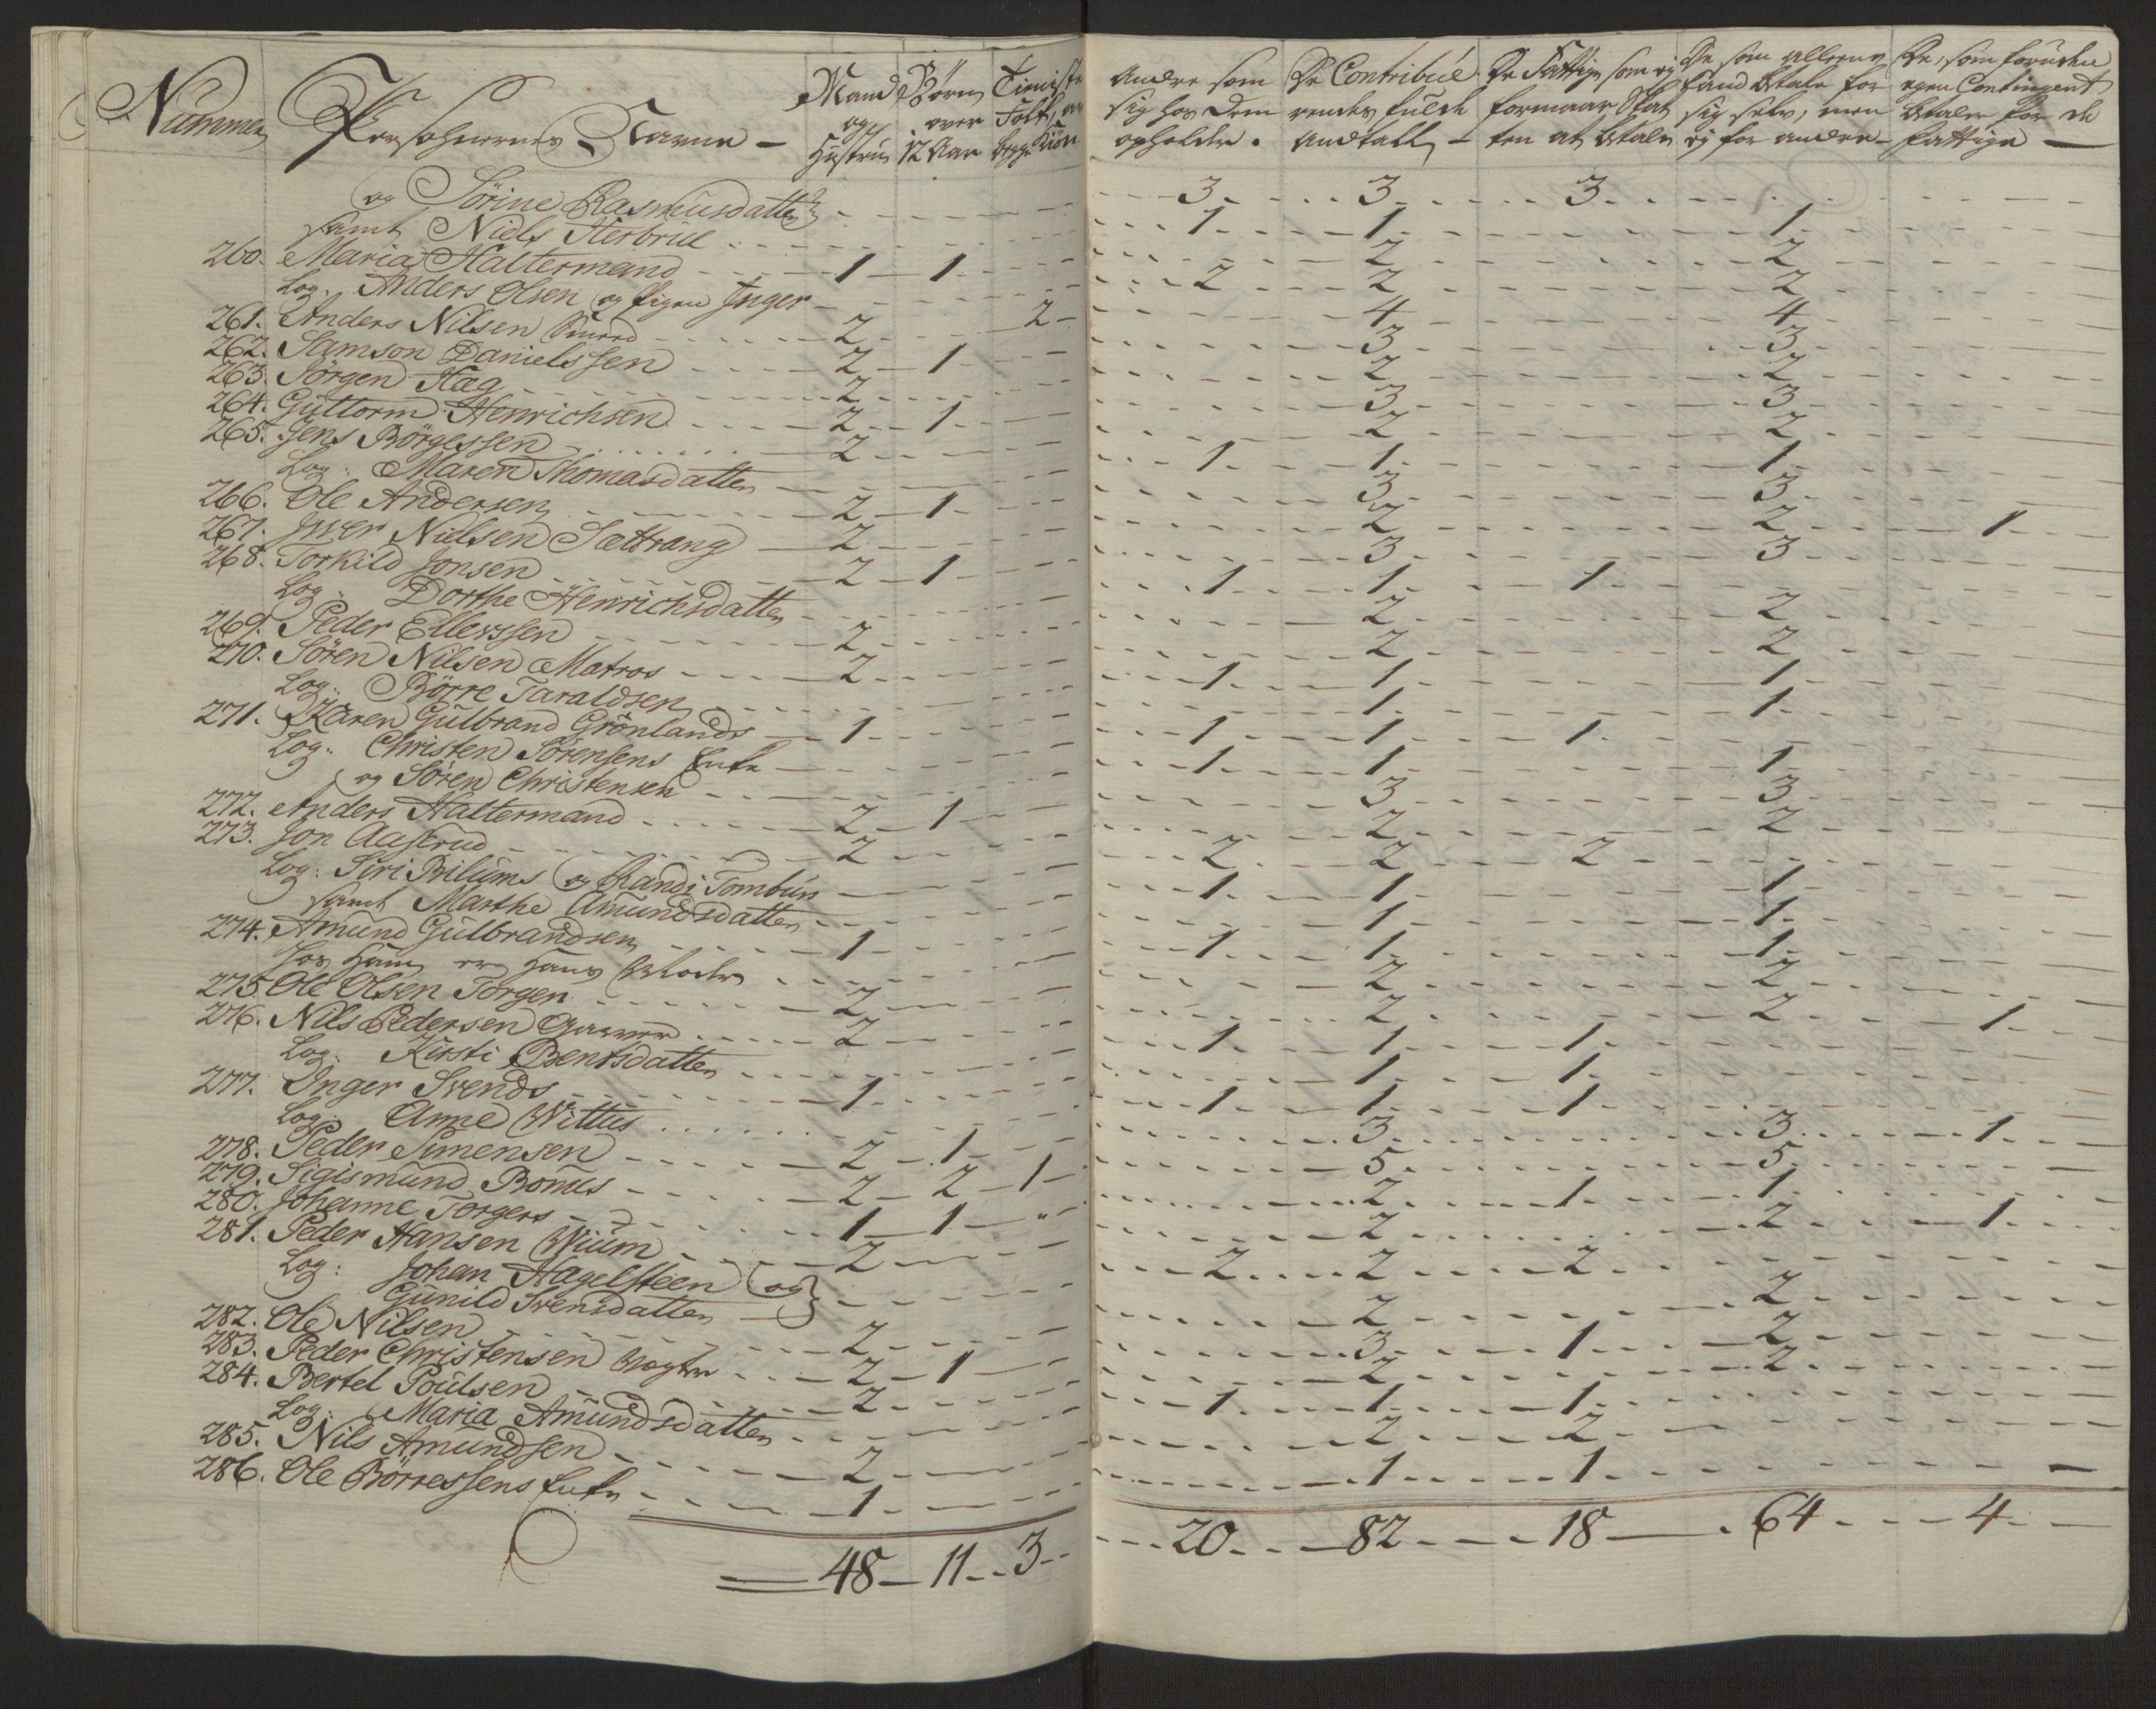 Nummer Persohnernes Navne - Mand og Hustru Børn over 12 Aar Tieniste Folk, av begge Kiön Andre som sig hos dem opholder. De Contribuerendes fulde Andtall - De Fattige, som ej formaar Skatten at betale De som alleene kand betale for sig selv, men ej for andre - De, som foruden egen Contingent betaler for de fattige -
og Sörine Rasmusdatter 3 3 3
samt Niels Herbrue 1 1 1
260. Maria Haltermand 1 1 2 2
Log. Anders Olsen og Pigen Inger 2 2 2
261. Anders Nilsen Smed 2 2 4 4
262. Samson Danielssen 2 1 3 3
263. Jörgen Hag 2 2 2
264. Guttorm Henrichsen 2 1 3 3
265. Jens Börgessen 2 2 2
Log: Maren Thomasdatter 1 1 1
266. Ole Andersen 2 1 3 3
267. Iwer Nielsen Sættrang 2 2 2 1
268. Torkild Jonsen 2 1 3 3
Log: Dorthe Henrichsdatter 1 1 1
269. Peder Ellerssen 2 2 2
270. Sören Nilsen Matros 2 2 2
Log: Börre Taraldsen 1 1 1
271. Karen Gulbrand Grönlands 1 1 1
Log: Christen Sörensens Enke 1 1 1
og Sören Christensen 1 1 1
272. Anders Haltermand 2 1 3 3
273. Jon Aaserud 2 2 2
Log: Siri Bilums og Randi Tombün 2 2 2
samt Marthe Amundsdatter 1 1 1
274. Amund Gulbrandsen 1 1 1
hos ham er hans Moder 1 1 1
275. Ole Olsen Torgen 2 2 2
276. Nils Pedersen Garver 2 2 2 1
Log: Kirsti Bentsdatter 1 1 1
277. Inger Svends 1 1 1
Log: Anne Wittus 1 1 1
278. Peder Simensen 2 1 3 3 1
279. Sigismund Bomus 2 2 1 5 5
280. Johanne Torgers 1 1 " 2 1 1
281. Peder Hansen Wium 2 2 2 1
Log: Johan Hagelsteen og
Gunild Svensdatter 2 2 2
282. Ole Nilsen 2 2 2
283. Peder Christensen Vogter 2 1 3 1 2
284. Bertel Poulsen 2 2 2
Log: Maria Amundsdatter 1 1 1
285. Nils Amundsen 2 2 2
286. Ole Börressens Enke 1 1 1
48 11 3 20 82 18 64 4